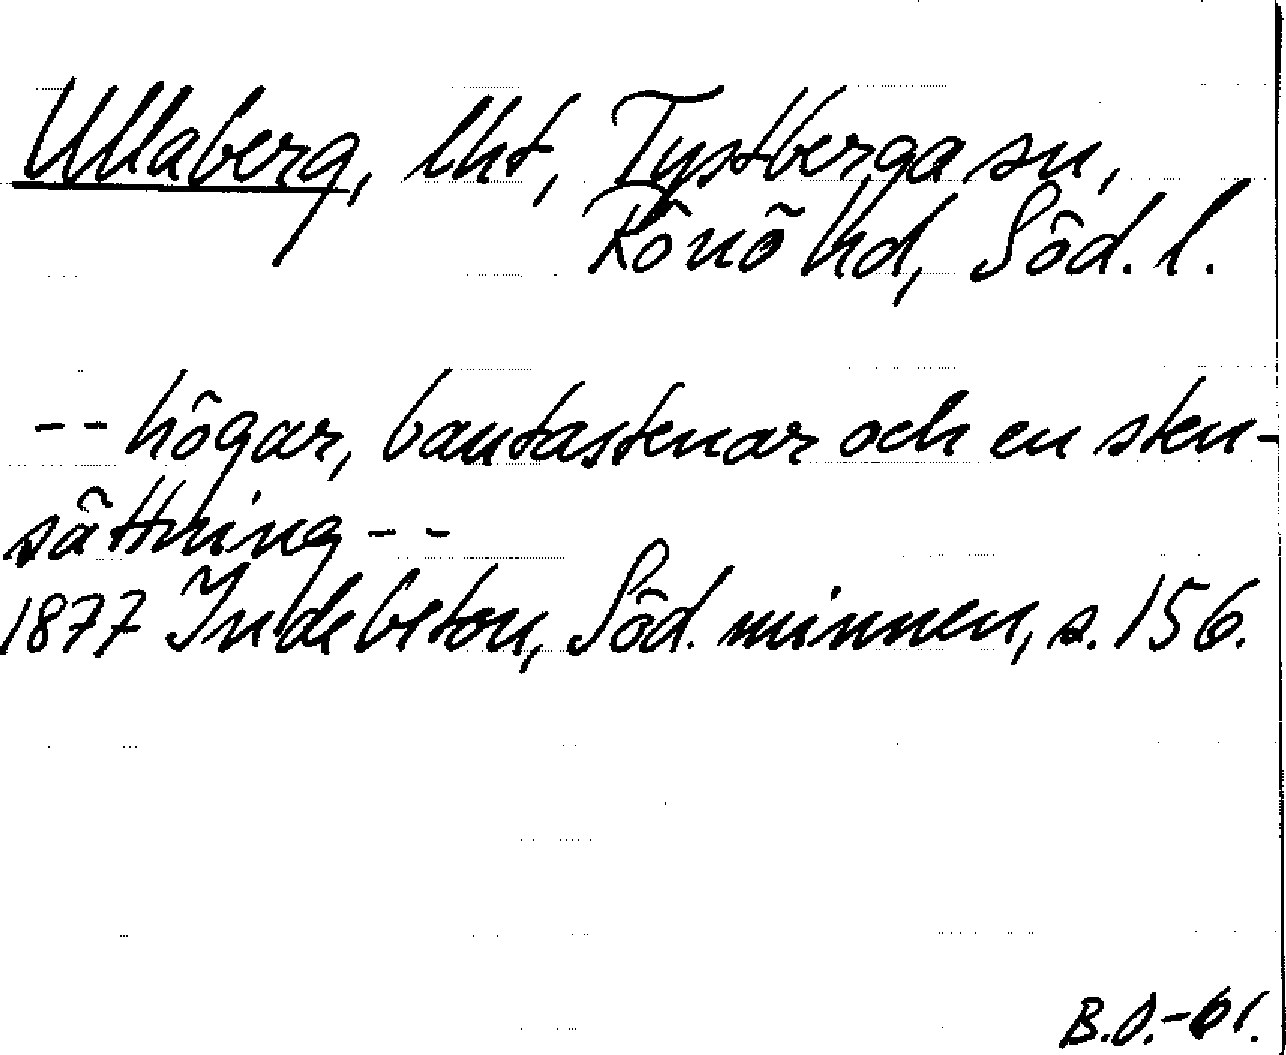 Ullaberg, lht, Tystberga sn,
Rönö hd, Söd. l.
-- högar, bautastenar och en sten-
sättning --
1877 Indebetou, Söd. minnen, s. 156.
B.S.-61.